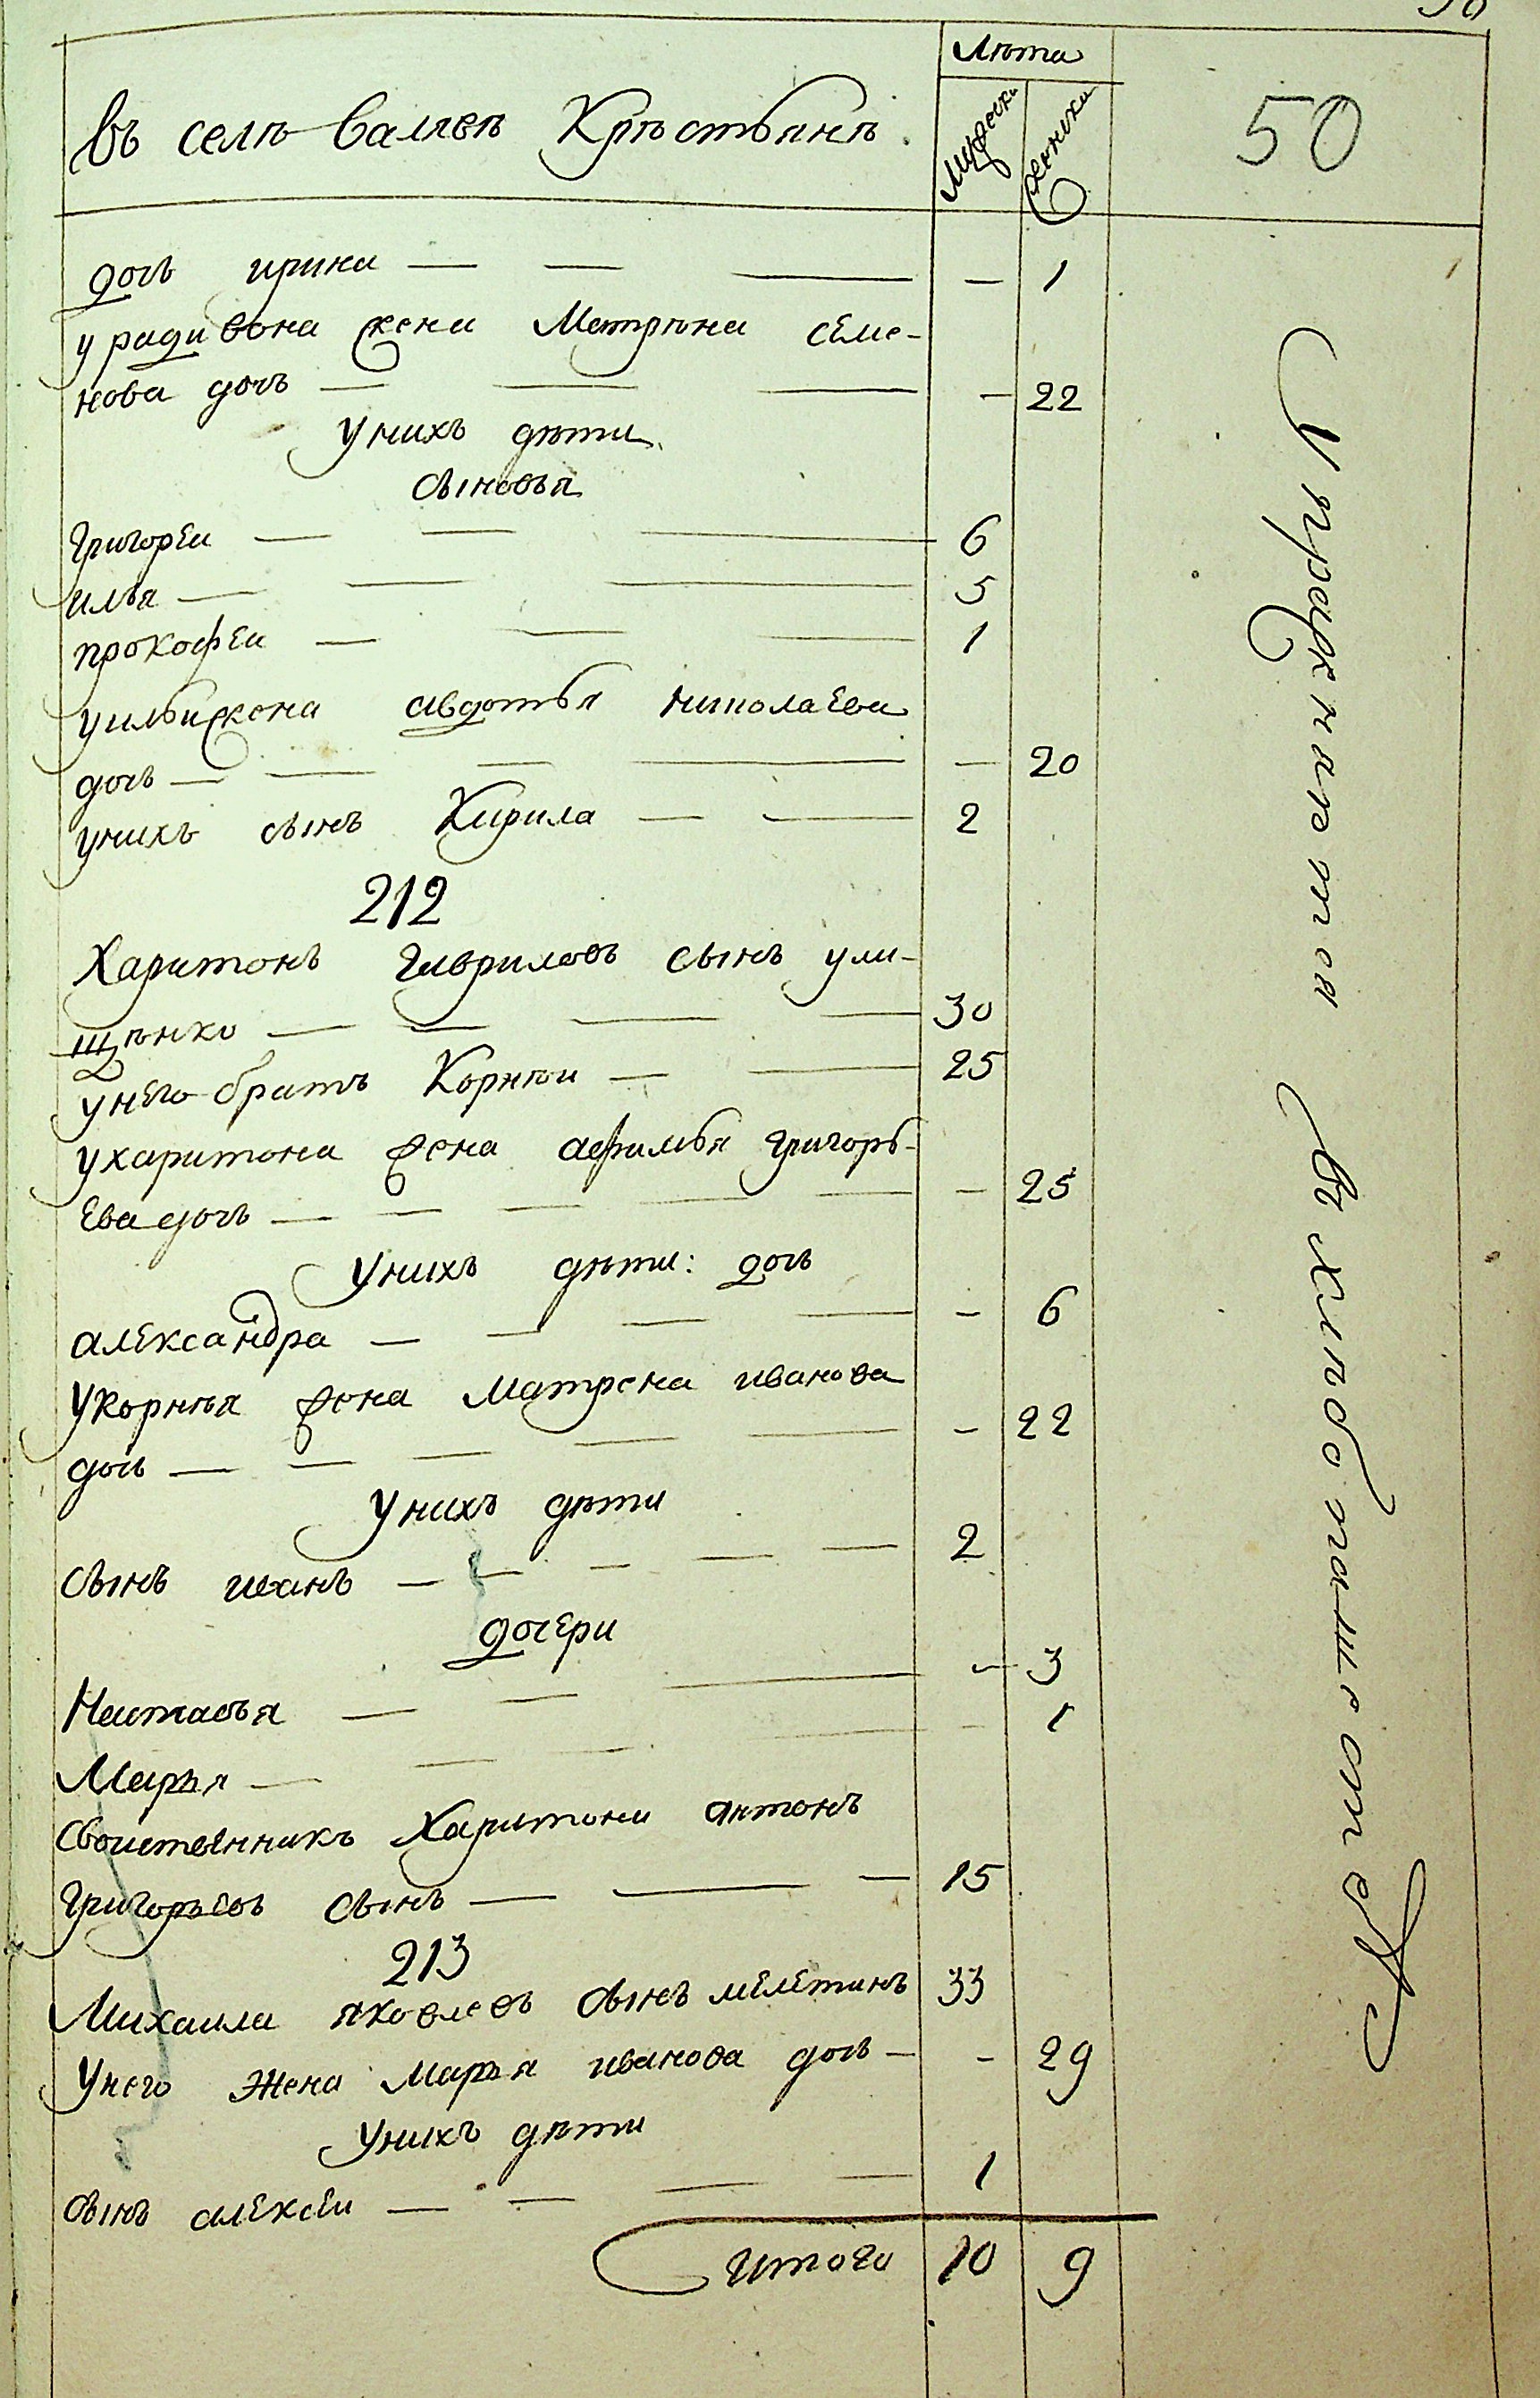 Лѣта
въ селѣ Валтевѣ Крѣстьянѣ
Мужески
Женски
50
дочь ирина — — — — 1
у радивона жена Матрѣна семе-
нова дочь — — — — 22
У нихъ дѣти
сыновья
григореи — — — 6
илья — — — 5
прокофеи — — — 1
у ильи жена авдотья николаева
дочь — — — — — 20
у нихъ сынъ Кирила — — 2
212
Харитонъ гавриловъ сынъ ули-
щѣнко — — — — 30
у него братъ Корнѣи — — 25
у харитона жена афимья григорь-
ева дочь — — — — — — 25
У нихъ дѣти: дочь
александра — — — — — 6
У корнѣя жена Матрена иванова
дочь — — — — — — 22
У нихъ дѣти
сынъ иванъ — — — — — 2
дочери
Настасья — — — — 3
Марья — — — — — 1
свойственникъ Харитона антонъ
григорьевъ сынъ — — — 15
213
Михаила яковлевъ сынъ мелетинъ 33
У него жена Марья иванова дочь — — 29
У нихъ дѣти
сынъ алексеи — — — — 1
итого 10 9
Упражняются
в хлебопашестве